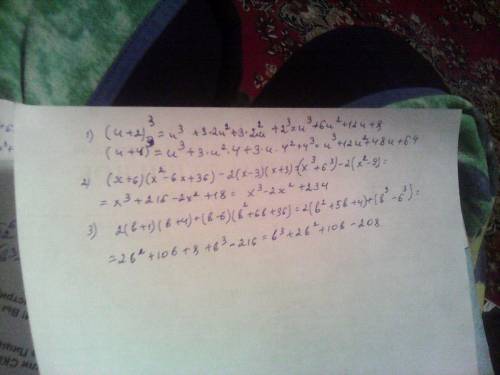 1) (u+2)³ = u³ + 3·2u² + 3·2²u + 2³ = u³ + 6u² + 12u + 8,
(u+4)³ = u³ + 3·u²·4 + 3·u·4² + 4³ = u³ + 12u² + 48u + 64
2) (x+6)(x²-6x+36) - 2(x-3)(x+3) = (x³+6³) - 2(x²-9) =
= x³ + 216 - 2x² + 18 = x³ - 2x² + 234
3) 2(b+1)(b+4) + (b-6)(b²+6b+36) = 2(b²+5b+4) + (b³-6³) =
= 2b² + 10b + 8 + b³ - 216 = b³ + 2b² + 10b - 208